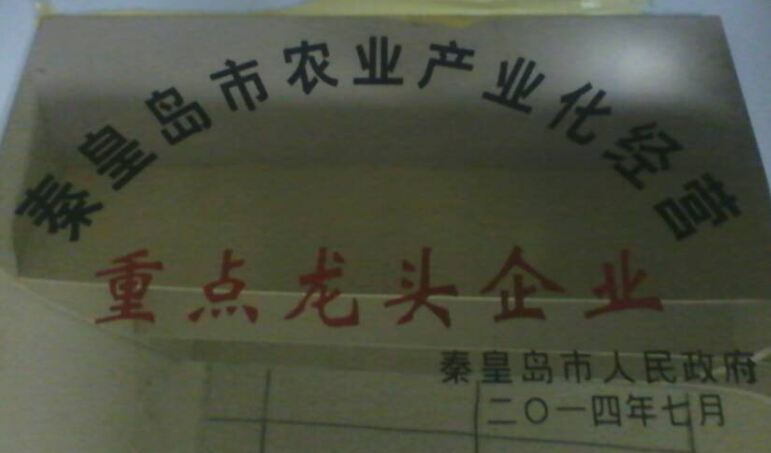 秦皇岛市农业产业化经营
重点龙头企业
秦皇岛市人民政府
二〇一四年七月